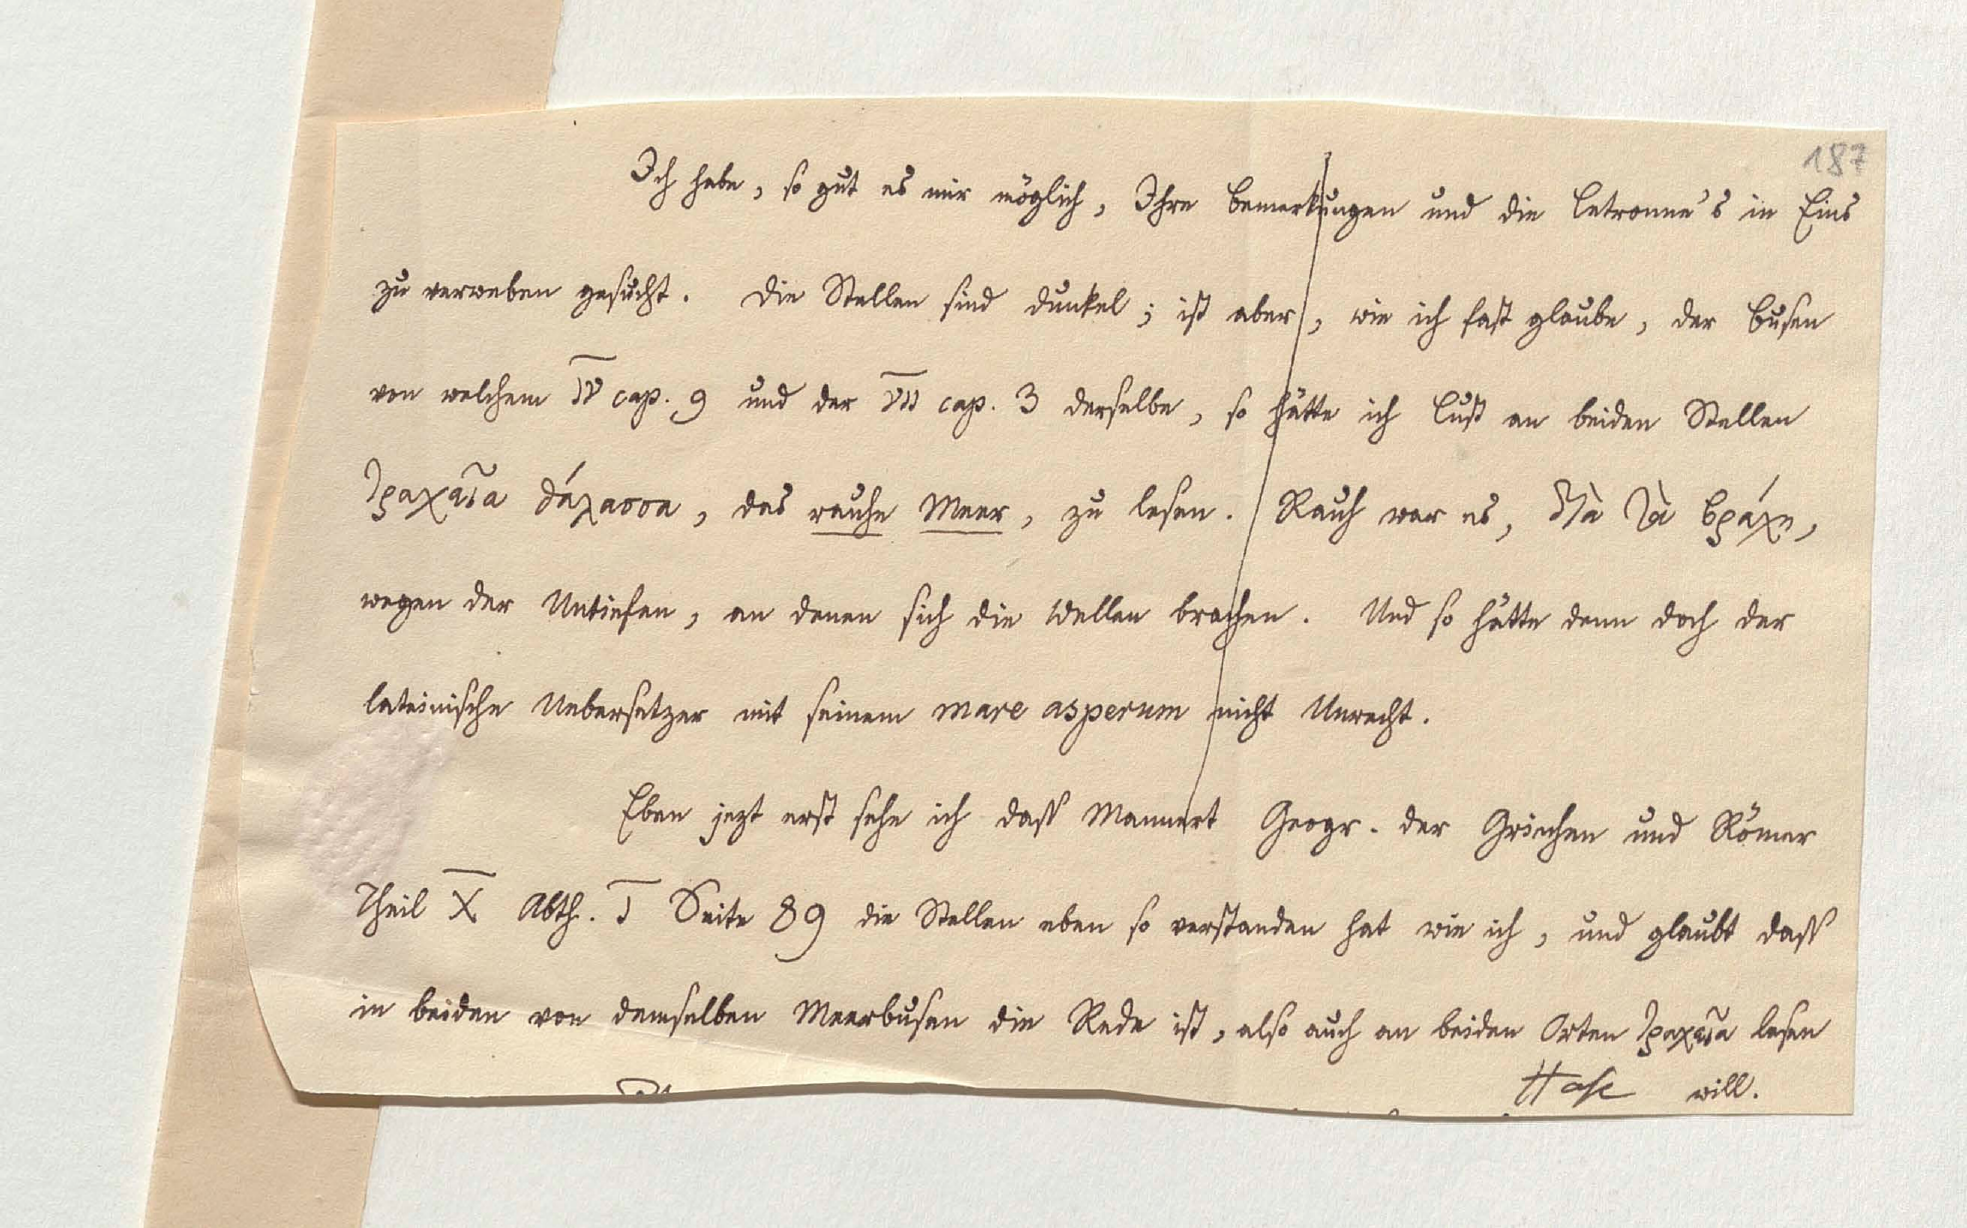 187
Ich habe, so gut es mir möglich, Ihre Bemerkungen und die Letronne's in Eins
zu verweben gesucht. Die Stellen sind dunkel; ist aber, wie ich fast glaube, der Busen
von welchem IV cap. 9 und der VII cap. 3 derselbe, so hätte ich Lust an beiden Stellen
τραχεῖα θάλασσα, das rauhe Meer, zu lesen. Rauh war es, διὰ τὰ βράχη,
wegen der Untiefen, an denen sich die Wellen brachen. Und so hätte denn doch der
lateinische Uebersetzer mit seinem mare asperum nicht Unrecht.
Eben jezt erst sehe ich daß Mannert Geogr. der Griechen und Römer
Theil X Abth. I Seite 89 die Stellen eben so verstanden hat wie ich, und glaubt daß
in beiden von demselben Meerbusen die Rede ist, also auch an beiden Orten τραχεῖα lesen
Hase will.